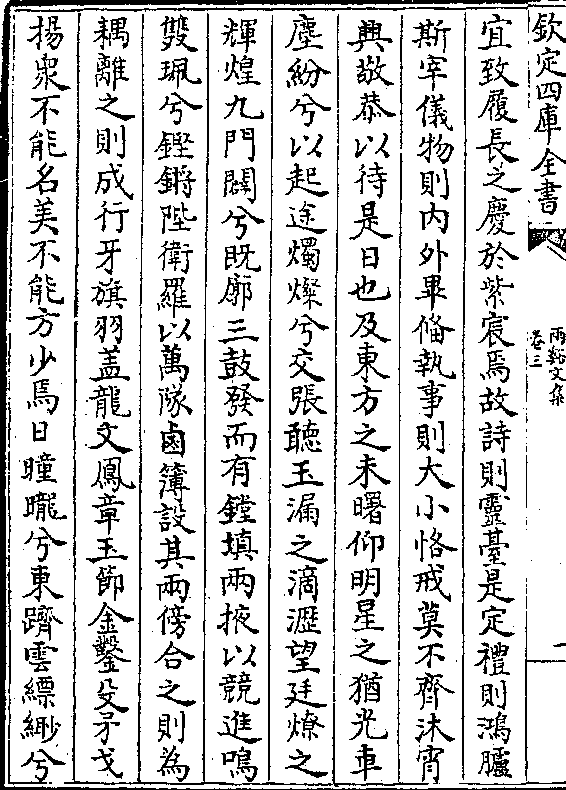 欽定四庫全書
兩谿文集
卷三
一
宜致履長之慶於紫宸焉故詩則靈臺是定禮則鴻臚
斯宰儀物則內外畢偹執事則大小恪戒莫不齊沐宵
興敬恭以待是日也及東方之未曙仰明星之猶光車
塵紛兮以起途燭燦兮交張聽玉漏之滴瀝望廷燎之
輝煌九門闢兮既廓三鼓發而有鏜填兩掖以競進鳴
雙珮兮鏗鏘陛衛羅以萬隊鹵簿設其兩傍合之則為
耦離之則成行牙旗羽盖龍文鳳章玉節金鑿殳矛戈
揚衆不能名美不能方少焉日曈曨兮東躋雲縹緲兮